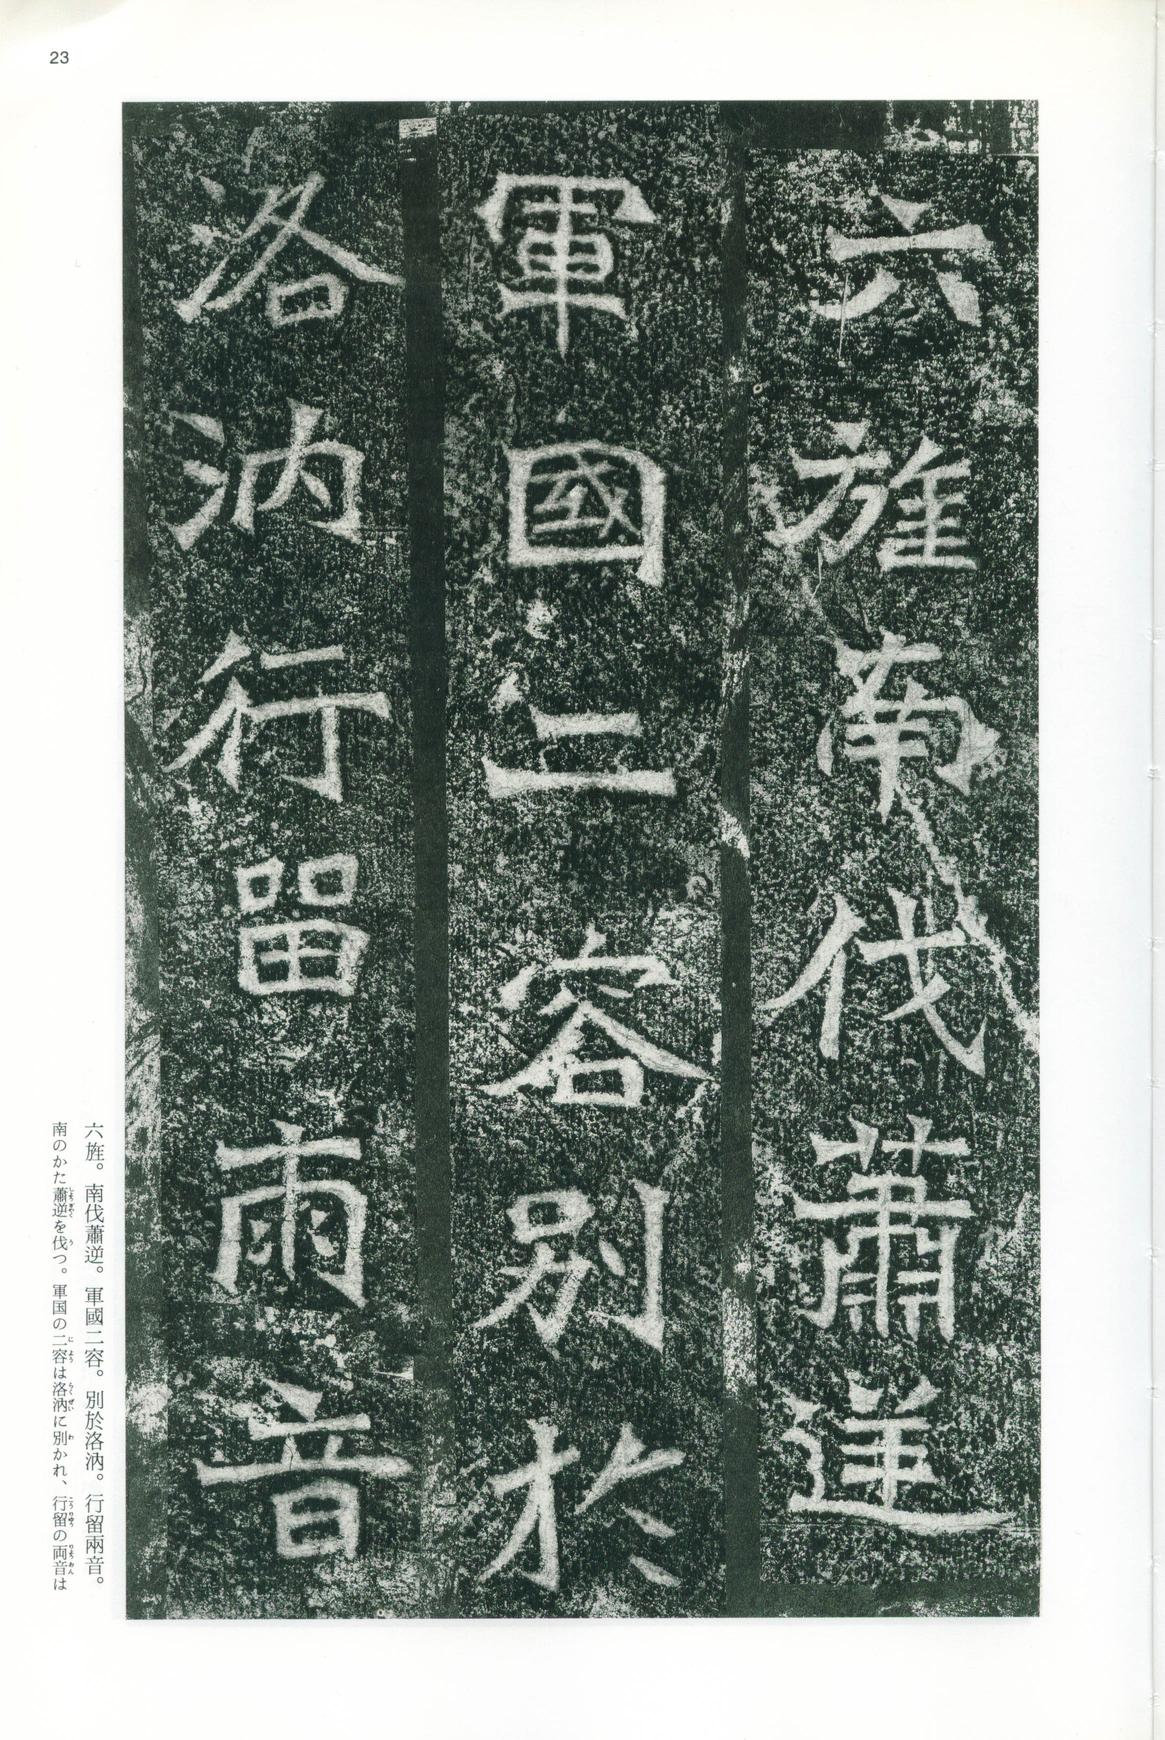 23
六旌南伐蕭逆
軍國二容別於
洛汭行留兩音
六旌。南伐蕭逆。軍國二容。別於洛汭。行留兩音。
南のかた蕭逆を伐つ。軍国の二容は洛汭に別かれ、行留の両音は